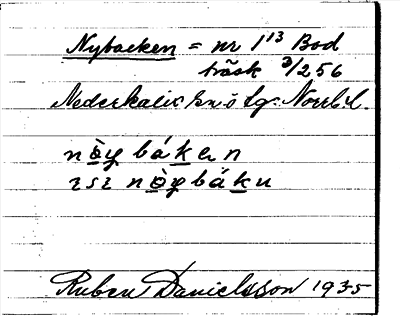 Nybacken = nr 1¹³ Bod
träsk 3/256
Nederkalix sn ö lg. Norrb. l.
nỳ bákan
nỳ báku
Ruben Danielsson 1935